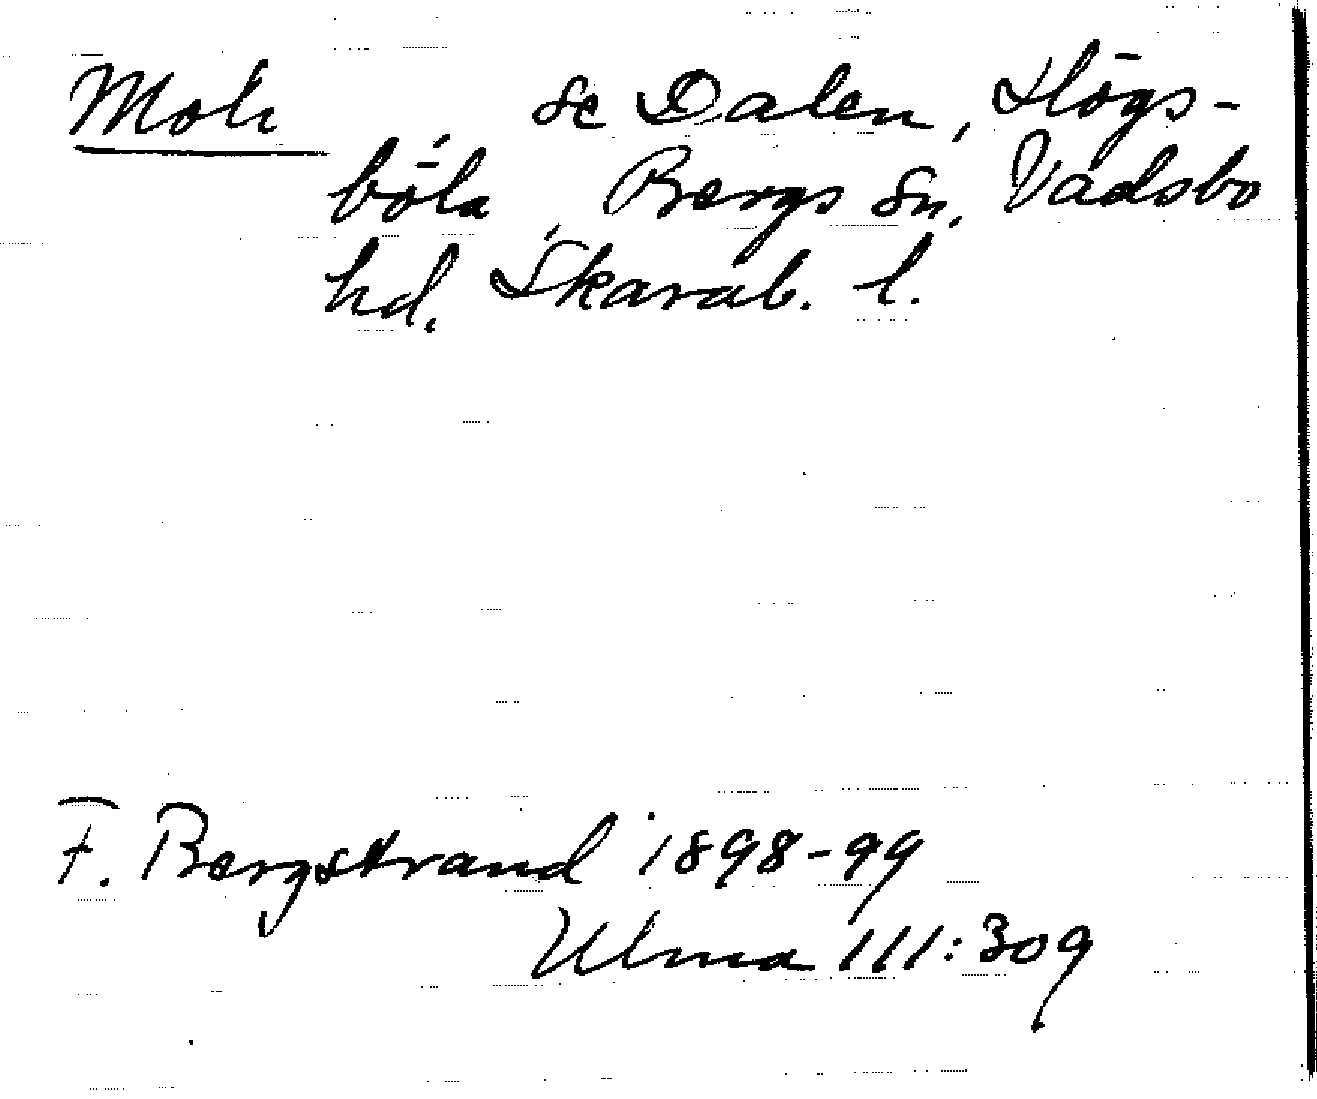 Moh se Dalen, Högs-
böla, Bergs sn, Vadsbo
hd, Skarab. l.
F. Bergstrand 1898-99
Ulma 111:309